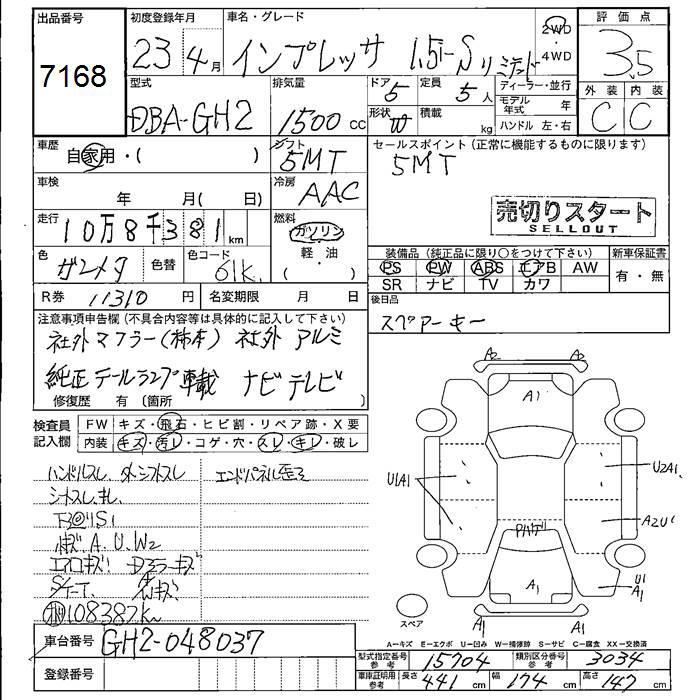 出品番号
7168
初度登録年月
23 4月
車名・グレード
インプレッサ 1.5i-Sリミテッド
2WD・4WD
評価点
3.5
型式
DBA-GH2
排気量
1500cc
ドア
5
定員
5人
形状
W
積載
kg
ディーラー・並行
モデル年式 年
ハンドル 左・右
外装 内装
C C
車歴
自家用・( )
シフト
5MT
セールスポイント(正常に機能するものに限ります)
5MT
売切りスタート
SELLOUT
車検
年 月( 日)
冷房
AAC
走行
10万8千381km
燃料
ガソリン・軽・油・( )
色
ガンメタ
色替
色コード
61K
装備品(純正品に限り○をつけて下さい)
PS PW ABS エアB AW
SR ナビ TV カワ
新車保証書
有・無
R券
11310円
名変期限 月 日
後日品
スペアーキー
注意事項申告欄(不具合内容等は具体的に記入して下さい)
社外マフラー(柿本) 社外アルミ
純正テールランプ車載 ナビテレビ
修復歴 有〔箇所 〕
検査員記入欄
FW キズ・飛石・ヒビ割・リペア跡・X要
内装 キズ・汚レ・コゲ・穴・スレ・キレ・破レ
ハンドルスレ
シートスレ、キレ
エンドパネル歪ミ
A.U.W2
エアロキズ ドアミラーキズ
108387km
A2 A2
A1
U1A1
U2A1
A2U1
A1
U1
A1
A1 A1
スペア
A-キズ E-エクボ U-凹み W-補修跡 S-サビ C-腐食 XX-交換済
車台番号
GH2-048037
登録番号
型式指定番号 参考
15704
類別区分番号 参考
3034
車庫証明用 参考
長さ 441cm
幅 174cm
高さ 147cm